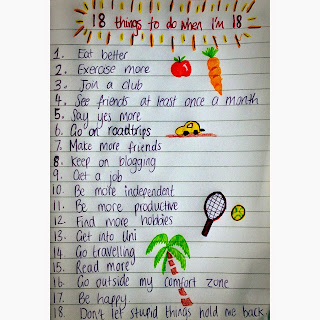 18 things to do when I'm 18
1. Eat better
2. Exercise more
3. Join a club
4. See friends at least once a month
5. Say yes more
6. Go on roadtrips
7. Make more friends
8. Keep on blogging
9. Get a job
10. Be more independent
11. Be more productive
12. Find more hobbies
13. Get into Uni
14. Go travelling
15. Read more
16. Go outside my comfort zone
17. Be happy
18. Don't let stupid things hold me back